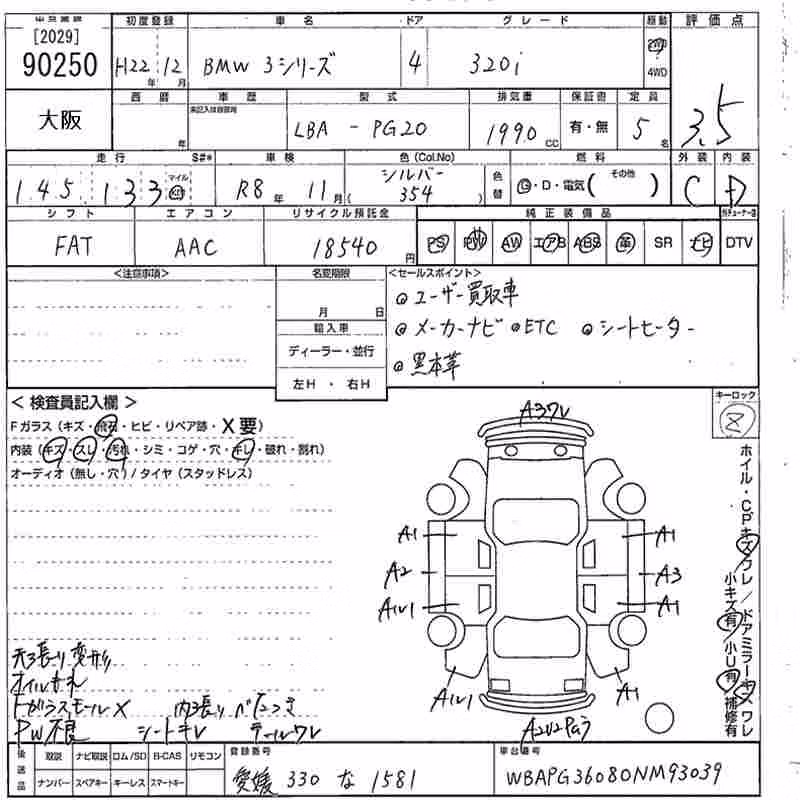 [2029]
90250
大阪
初度登録 車名 ドア グレード 駆動 評価点
H22年 12月 BMW 3シリーズ 4 320i 2WD 4WD
3.5
西暦 車歴 型式 排気量 保証書 定員
年 LBA - PG20 1990cc 有・無 5名
走行 S#* 車検 色(Col.No) 燃料 外装 内装
145,133 マイル km R8年 11月 シルバー (354) 色替 G・D・電気( その他 ) C D
シフト エアコン リサイクル預託金 純正装備品
FAT AAC 18540円 PS PW AW エアB ABS 革 SR ナビ DTV
<注意事項> 名変期限 <セールスポイント>
月 日 ◎ユーザー買取車
輸入車 ◎メーカーナビ ◎ETC ◎シートヒーター
ディーラー・並行 ◎黒本革
左H ・ 右H
キーロック
8
< 検査員記入欄 >
Fガラス(キズ・飛石・ヒビ・リペア跡・X要)
内装(キズ・スレ・汚れ・シミ・コゲ・穴・キレ・破れ・割れ)
オーディオ(無し・穴)/タイヤ(スタッドレス)
A3ワレ
A1 A1
A2 A3
A1U1 A1
A1U1 A1
A2U2
ホイル・CPキズワレ/ドアミラーキズワレ
小キズ有/小U有 補修有
天張り変形
オイルもれ
ドガラスモールX 内張りベタつき
PW不良 シートキレ テールワレ
後送品 取説 ナビ取説 ロム/SD B-CAS リモコン 登録番号 車台番号
ナンバー スペアキー キーレス スマートキー 愛媛 330 な 1581 WBAPG36080NM93039